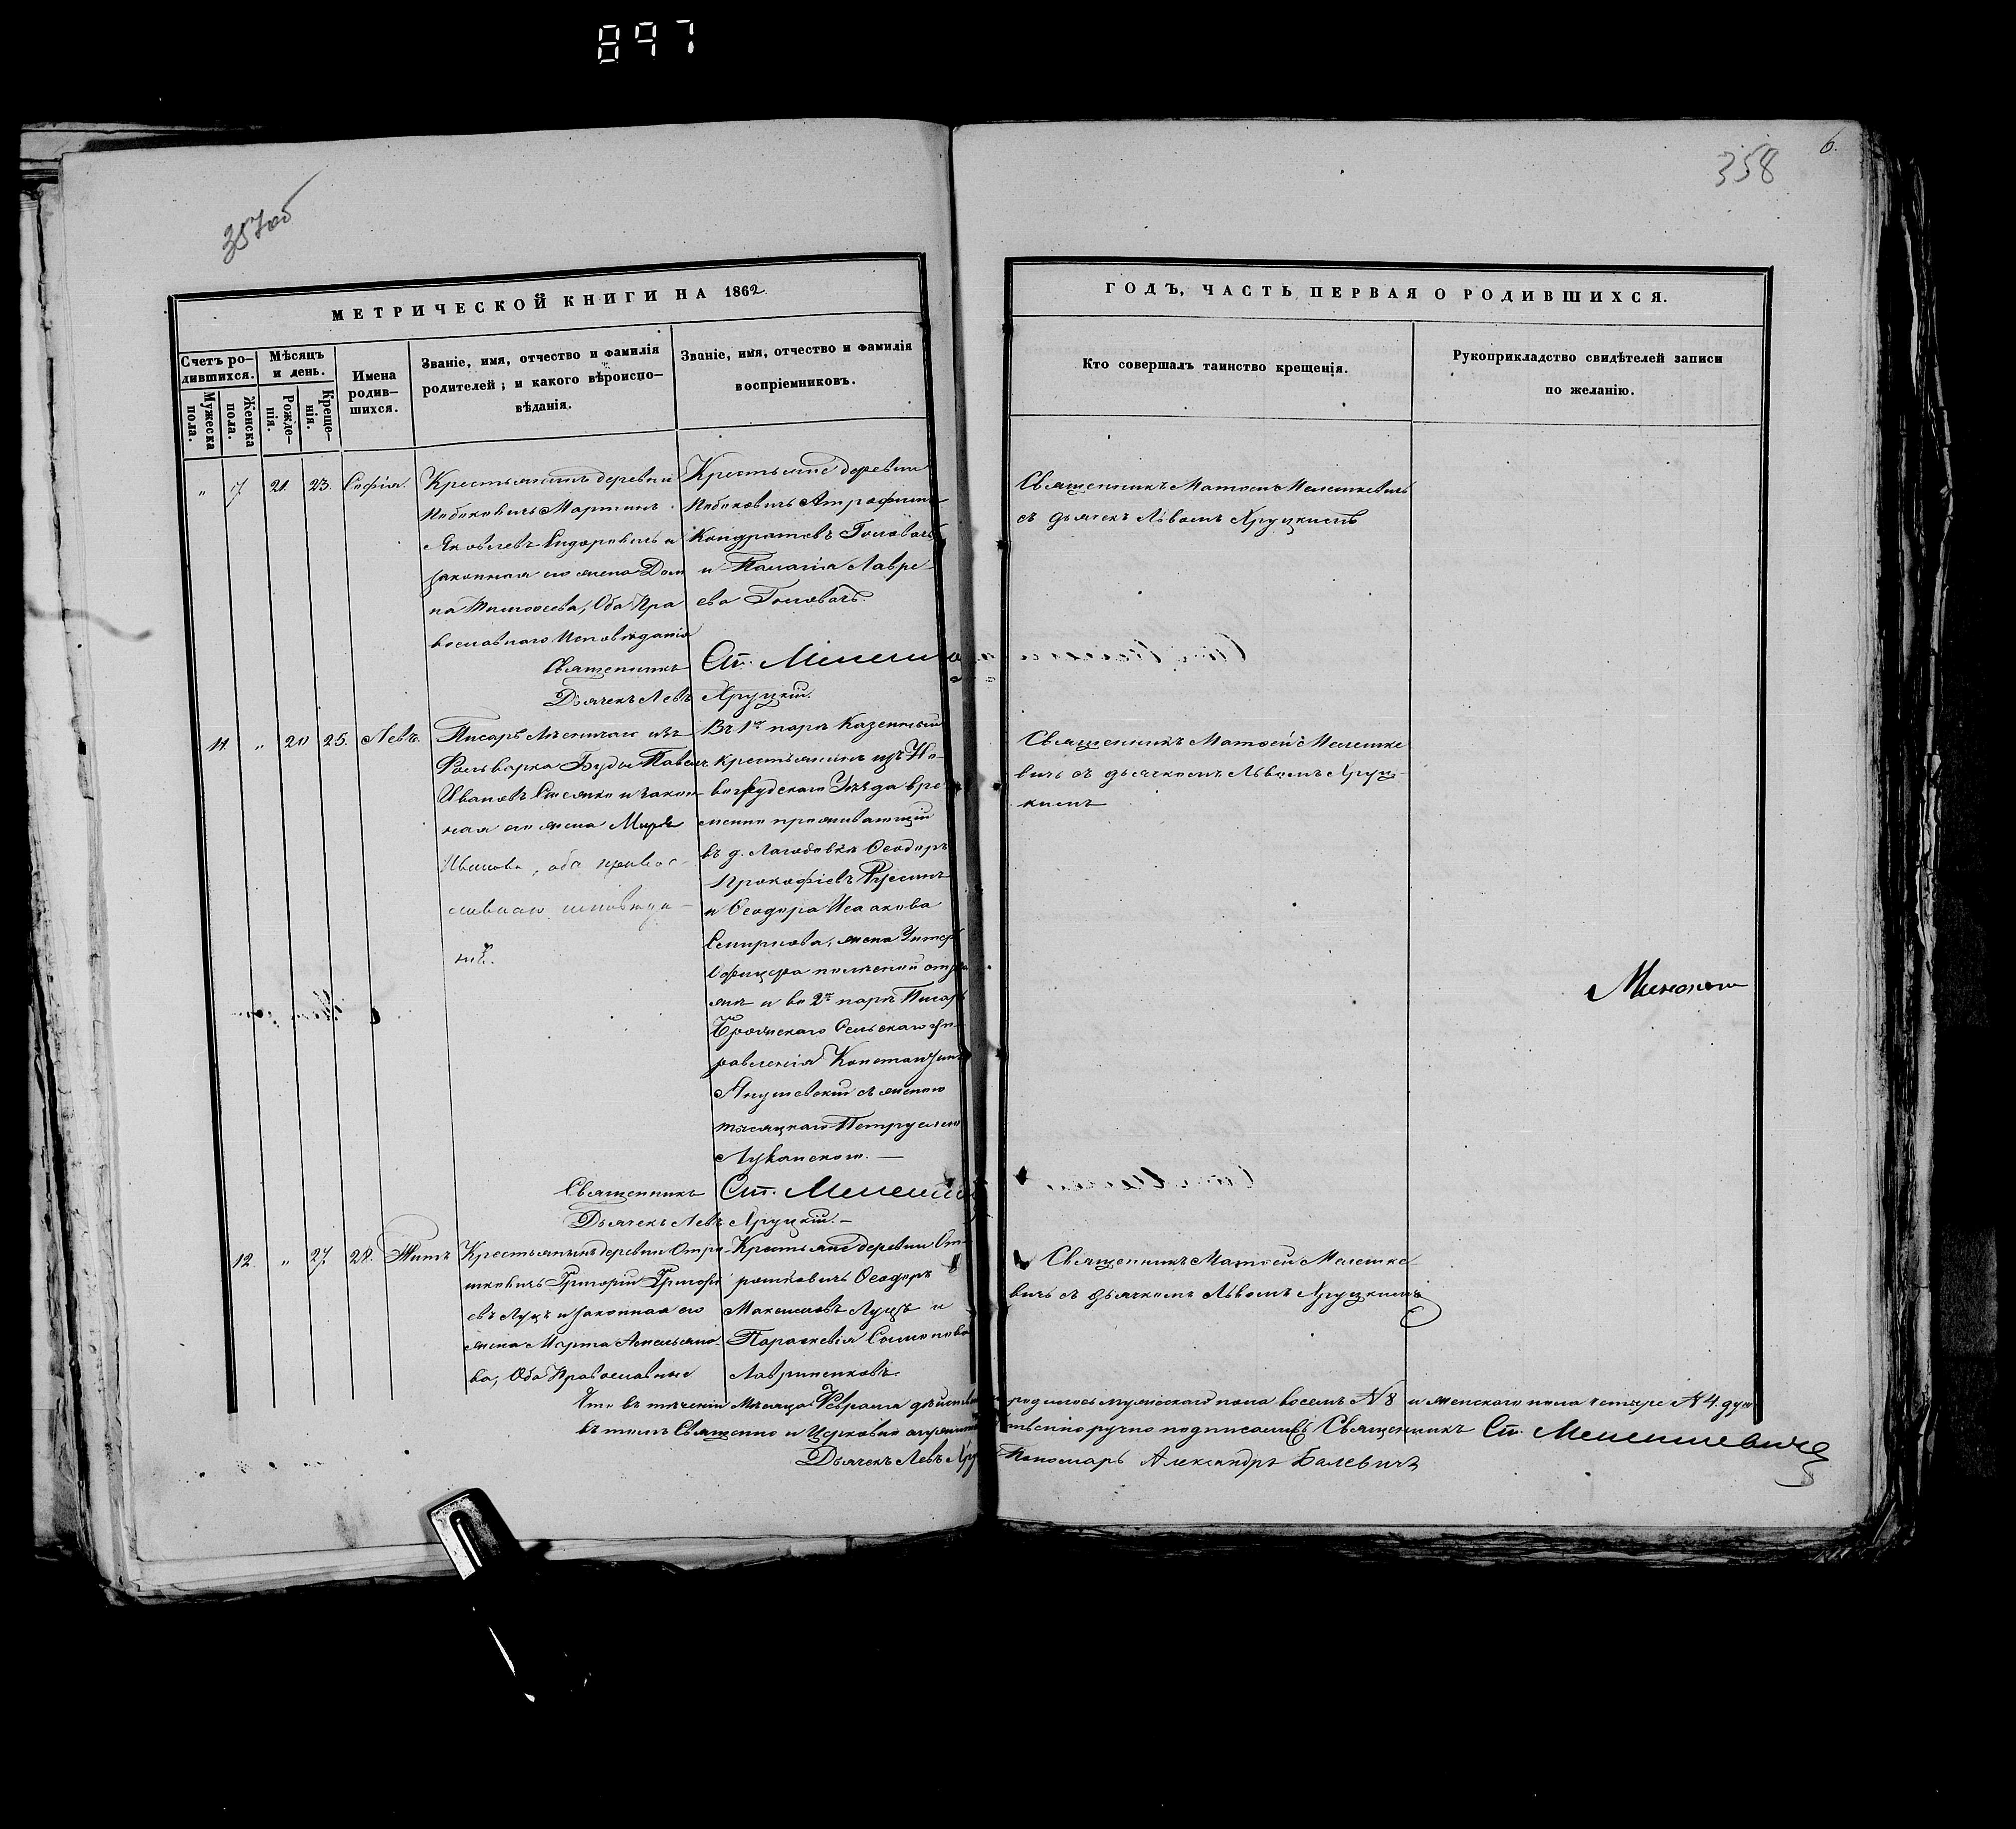 897
357об
358
6.
МЕТРИЧЕСКОЙ КНИГИ НА 1862.
ГОДЪ, ЧАСТЬ ПЕРВАЯ О РОДИВШИХСЯ.
Счетъ ро-
дившихся.
Мужеска
пола.
Женска
пола.
Мѣсяцъ
и день.
Рожде-
нія.
Креще-
нія.
Имена
родив-
шихся.
Званіе, имя, отчество и фамилія
родителей; и какого вѣроиспо-
вѣданія.
Званіе, имя, отчество и фамилія
воспріемниковъ.
Кто совершалъ таинство крещенія.
Рукоприкладство свидѣтелей записи
по желанію.
" 7 21. 23. Софія.
Крестьянинъ деревни
Мартинъ
Яковлевъ Сидоровичъ и
законная его жена Дом
на Тимоѳеева, Оба Пра
вославнаго Исповѣданія
Крестьяне деревни
Кондратовъ Головачъ
и Пелагія Лавре-
ева Головачъ.
Священникъ Матѳей Мелешкевичъ
съ дьячек Львомъ Хруцкимъ
Священникъ Ст. Мелешке
Дьячекъ Левъ Хруцкій.
11. " 20 25. Левъ.
Писарь Лѣсничаго изъ
Фольварка Буды Павелъ
Ивановъ и закон-
ная его жена Марія
Иванова, оба правос-
славнаго исповѣда-
нія.
Въ 1й парѣ Казенный
крестьянинъ изъ Но-
вогрудскаго Уѣзда вре
менно проживающій
въ д. Ѳеодоръ
Прокофіевъ
и Ѳеодора Исаакова
Смирнова, жена Унтеръ
Офицера
и во 2й парѣ Писарь
Сельскаго Уп-
равленія Константинъ
съ женою
Священникъ Матѳей Мелешке
вичъ съ дьячкомъ Львомъ Хруц-
кимъ
Священникъ Ст. Мелешке
Дьячекъ Левъ Хруцкій.
12. " 27. 28. Титъ
Крестьянинъ деревни Отро
шковичъ Григорій Григорі
евъ Луцъ и законная его
жена Марта Емельяно-
ва, Оба Православные
Крестьяне деревни От-
рошковичъ Ѳеодоръ
Максимовъ Луцъ и
Параскевія Семенова
Священникъ Матѳей Мелешке-
вичъ съ дьячкомъ Львомъ Хруцкимъ
Что въ теченіи Мѣсяца Февраля родилось мужескаго пола восемь N 8 и женскаго пола четыре N 4. душ
въ томъ Священно и Церковно подписались Священникъ Ст. Мелешкевичъ
Дьячекъ Левъ Хру Пономарь Александръ Балевичъ